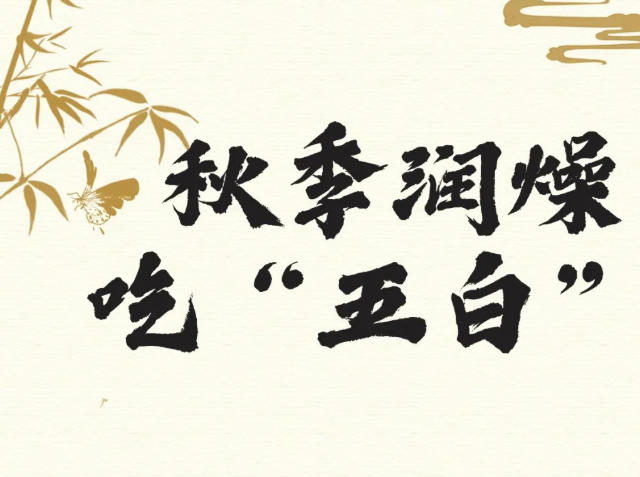 秋季润燥
吃“五白”